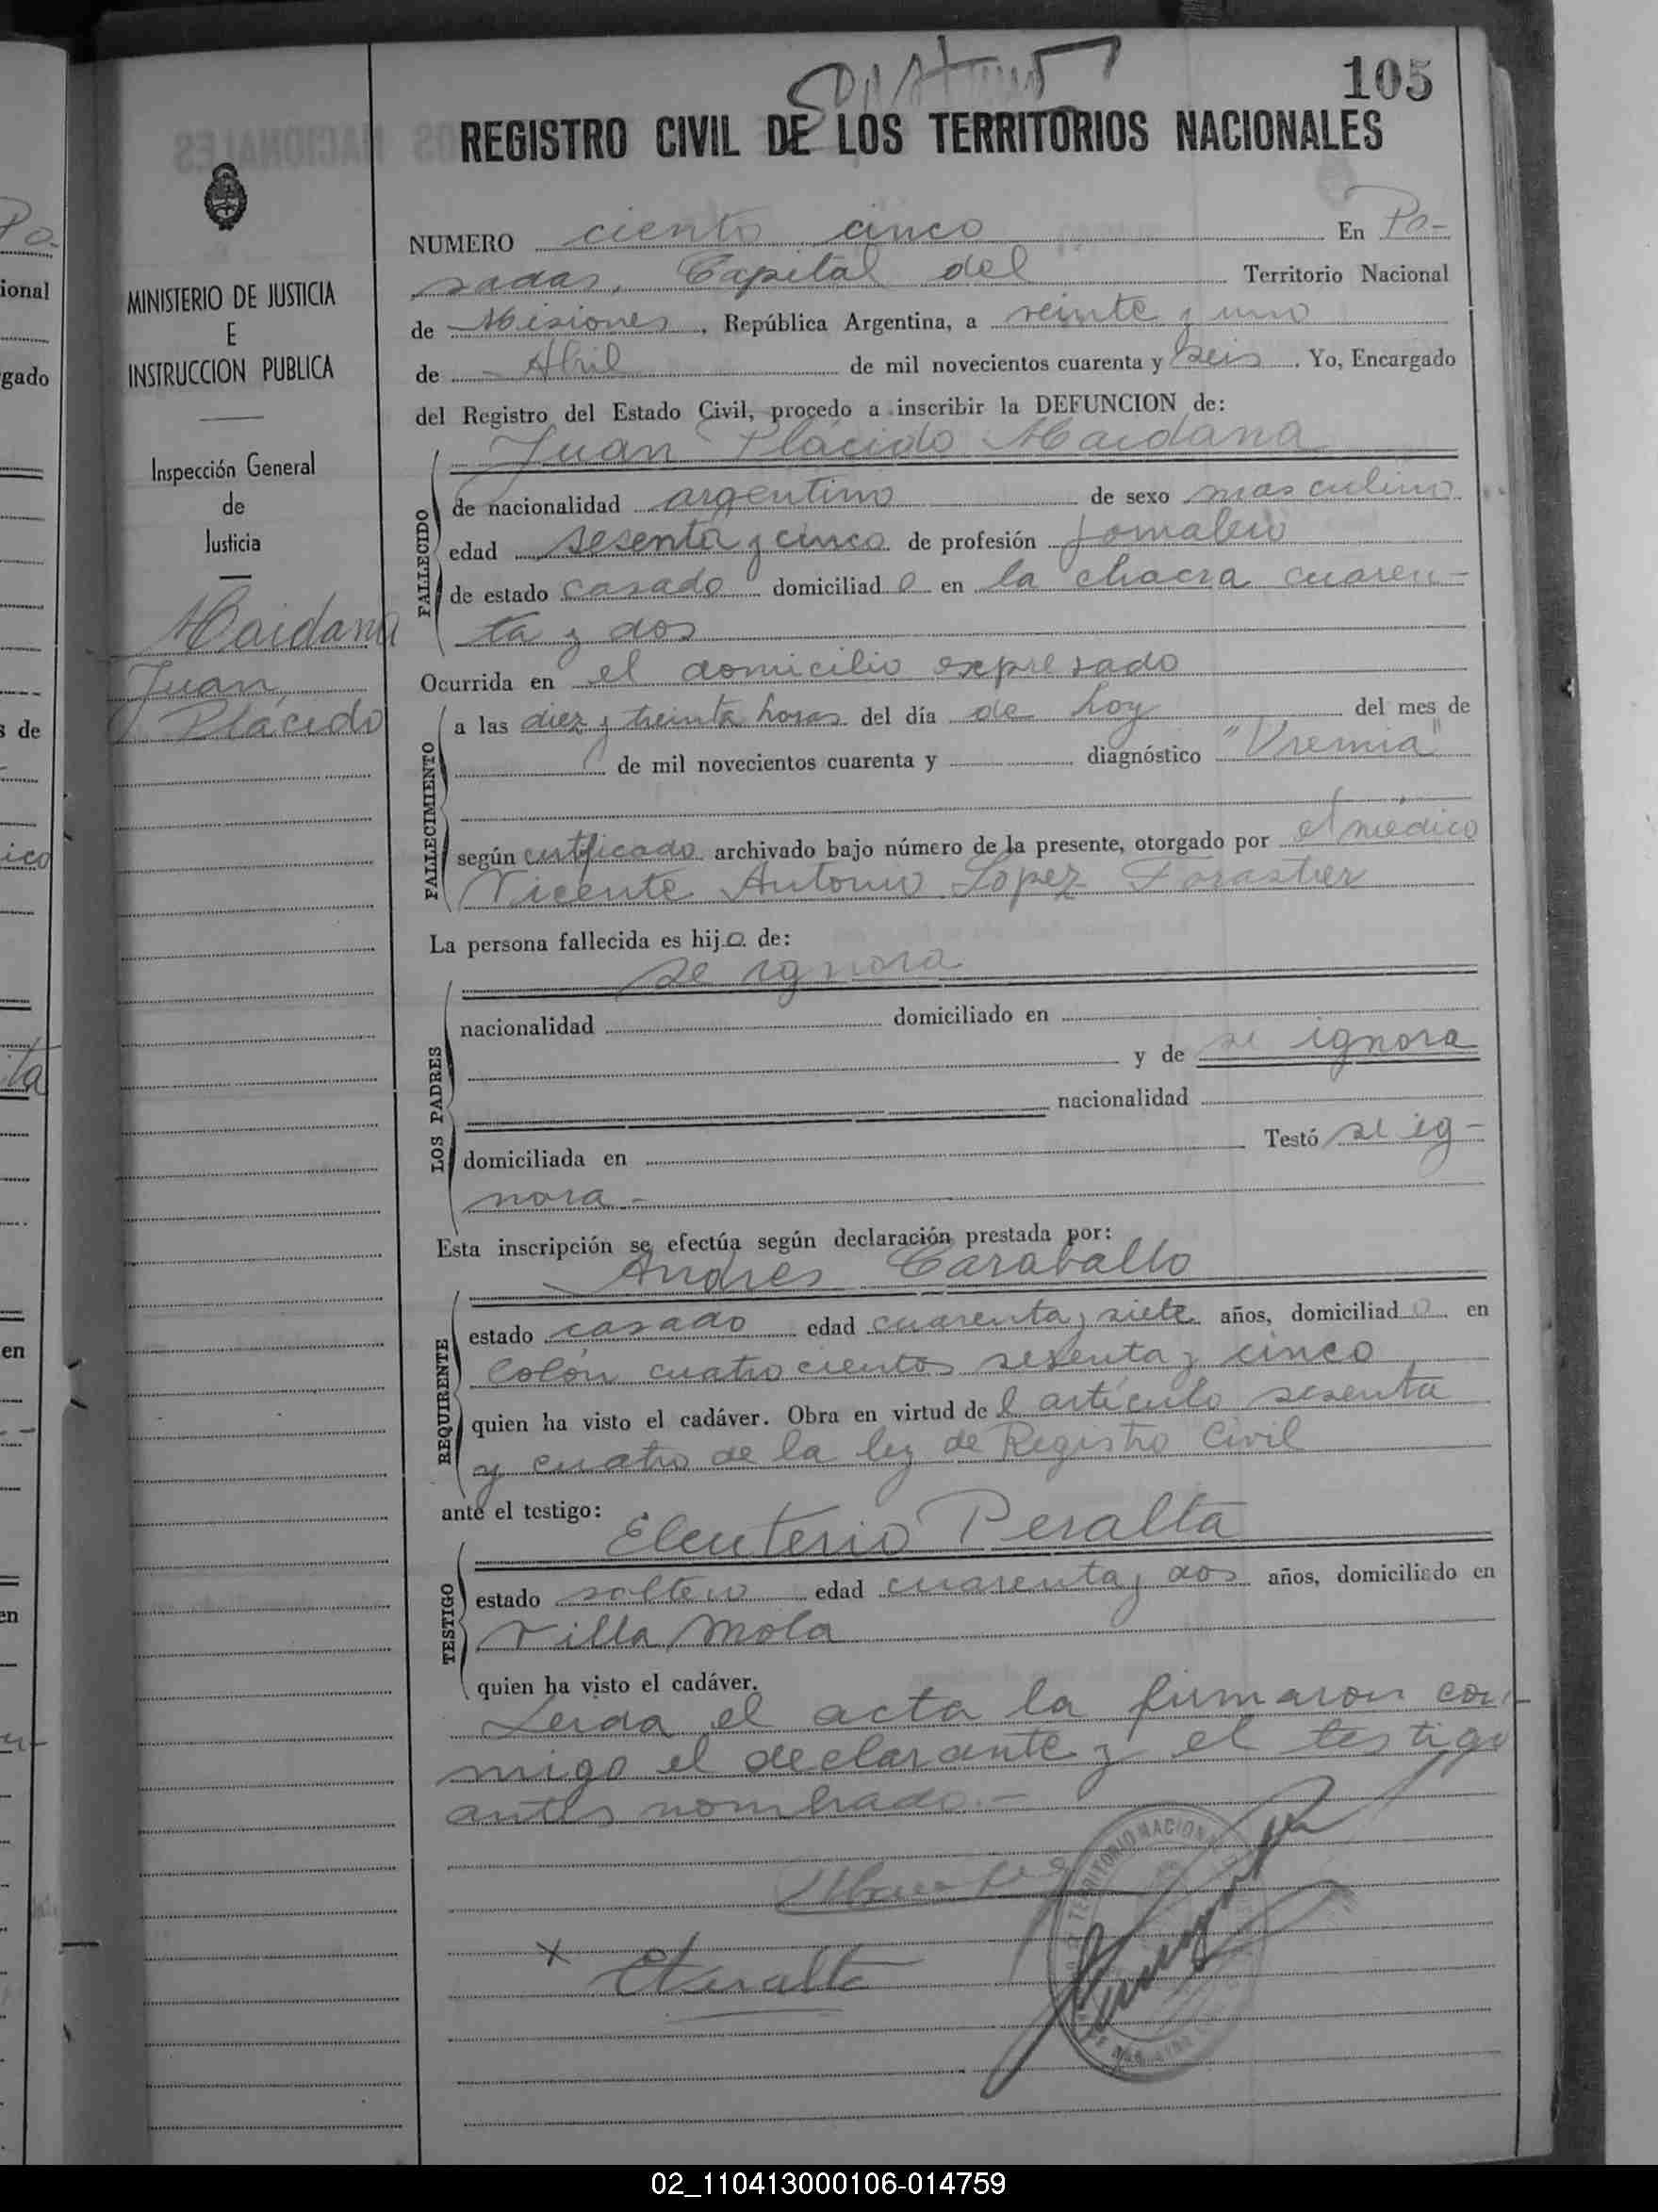 105
REGISTRO CIVIL DE LOS TERRITORIOS NACIONALES
MINISTERIO DE JUSTICIA
E
INSTRUCCION PUBLICA
Inspección General
de
Justicia
Maidana
Juan
Plácido
NUMERO ciento cinco En Po-
sadas, Capital del Territorio Nacional
de Misiones, República Argentina, a veinte y uno
de Abril de mil novecientos cuarenta y seis. Yo, Encargado
del Registro del Estado Civil, procedo a inscribir la DEFUNCION de:
Juan Plácido Maidana
FALLECIDO
de nacionalidad argentino de sexo masculino
edad sesenta y cinco de profesión jornalero
de estado casado domiciliado en la chacra cuaren-
ta y dos
Ocurrida en el domicilio expresado
FALLECIMIENTO
a las diez y treinta horas del día de hoy del mes de
de mil novecientos cuarenta y diagnóstico "Uremia"
según certificado archivado bajo número de la presente, otorgado por el médico
Vicente Antonio Lopez Forastier
La persona fallecida es hijo de:
se ignora
LOS PADRES
nacionalidad domiciliado en
y de se ignora
nacionalidad
domiciliada en Testó se ig-
nora-
Esta inscripción se efectúa según declaración prestada por:
Andres Caraballo
REQUIRENTE
estado casado edad cuarenta y siete años, domiciliado en
Colón cuatrocientos sesenta y cinco
quien ha visto el cadáver. Obra en virtud del artículo sesenta
y cuatro de la ley de Registro Civil
ante el testigo:
Eleuterio Peralta
TESTIGO
estado soltero edad cuarenta y dos años, domiciliado en
Villa Mola
quien ha visto el cadáver.
Leida el acta la firmaron con-
migo el declarante y el testigo
antes nombrado.-
TERRITORIO NACIONAL
x EPeralta
02_110413000106-014759